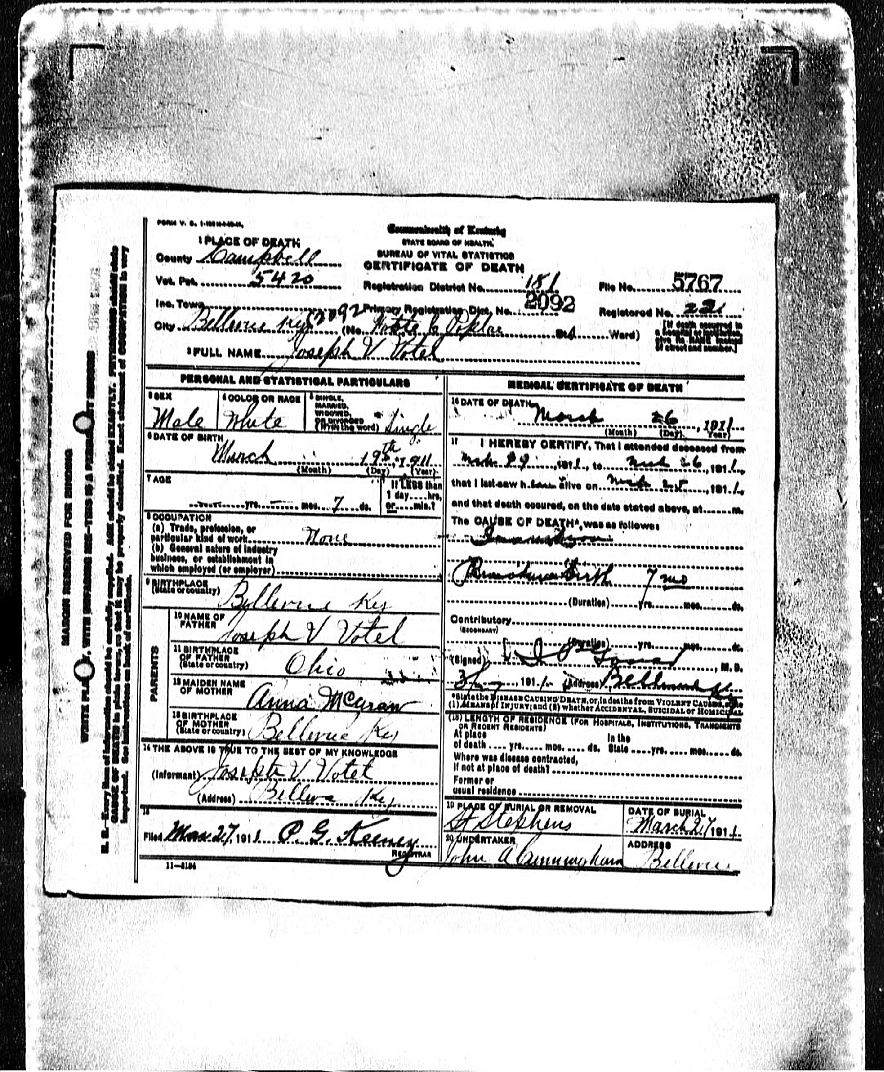 FORM V. S.
Commonwealth of Kentucky
STATE BOARD OF HEALTH
BUREAU OF VITAL STATISTICS
CERTIFICATE OF DEATH
1 PLACE OF DEATH
County Campbell
Vot. Pct. 5420
Registration District No. 181
File No. 5767
Inc. Town
Primary Registration Dist. No. 2092
Registered No.
City Bellevue Ky (No. Poplar St. Ward)
[If death occurred in a hospital or institution, give its NAME instead of street and number.]
2 FULL NAME Joseph V Votel
PERSONAL AND STATISTICAL PARTICULARS
3 SEX Male
4 COLOR OR RACE White
5 SINGLE, MARRIED, WIDOWED, OR DIVORCED (Write the word) Single
6 DATE OF BIRTH
March 19th, 1911
(Month) (Day) (Year)
7 AGE
yrs. mos. 7 ds.
If LESS than 1 day, hrs. or min.?
8 OCCUPATION
(a) Trade, profession, or
particular kind of work None
(b) General nature of industry
business, or establishment in
which employed (or employer)
9 BIRTHPLACE
(State or country) Bellevue Ky
PARENTS
10 NAME OF
FATHER Joseph V Votel
11 BIRTHPLACE
OF FATHER
(State or country) Ohio
12 MAIDEN NAME
OF MOTHER Anna McGraw
13 BIRTHPLACE
OF MOTHER
(State or country) Bellevue Ky
14 THE ABOVE IS TRUE TO THE BEST OF MY KNOWLEDGE
(Informant) Joseph V Votel
(Address) Bellevue Ky
15
Filed Mar 27, 1911 P. G. Keeney
REGISTRAR
11-3184
MEDICAL CERTIFICATE OF DEATH
16 DATE OF DEATH
March 26, 1911
(Month) (Day) (Year)
17 I HEREBY CERTIFY, That I attended deceased from
1911, to Mch 26, 1911,
that I last saw h alive on Mch 25, 1911,
and that death occured, on the date stated above, at m.
The CAUSE OF DEATH*, was as follows:
Premature Birth 7 mo
(Duration) yrs. mos. ds.
Contributory
(SECONDARY)
(Duration) yrs. mos. ds.
(Signed) M. D.
1911 (Address) Bellevue Ky
*State the DISEASE CAUSING DEATH, or, in deaths from VIOLENT CAUSES, state
(1) MEANS of INJURY; and (2) whether ACCIDENTAL, SUICIDAL or HOMICIDAL
(18) LENGTH OF RESIDENCE (FOR HOSPITALS, INSTITUTIONS, TRANSIENTS
OR RECENT RESIDENTS)
At place of death yrs. mos. ds. In the State yrs. mos. ds.
Where was disease contracted,
if not at place of death?
Former or
usual residence
19 PLACE OF BURIAL OR REMOVAL
St Stephens
DATE OF BURIAL
March 27, 1911
20 UNDERTAKER
John A Cunningham
ADDRESS
Bellevue
MARGIN RESERVED FOR BINDING